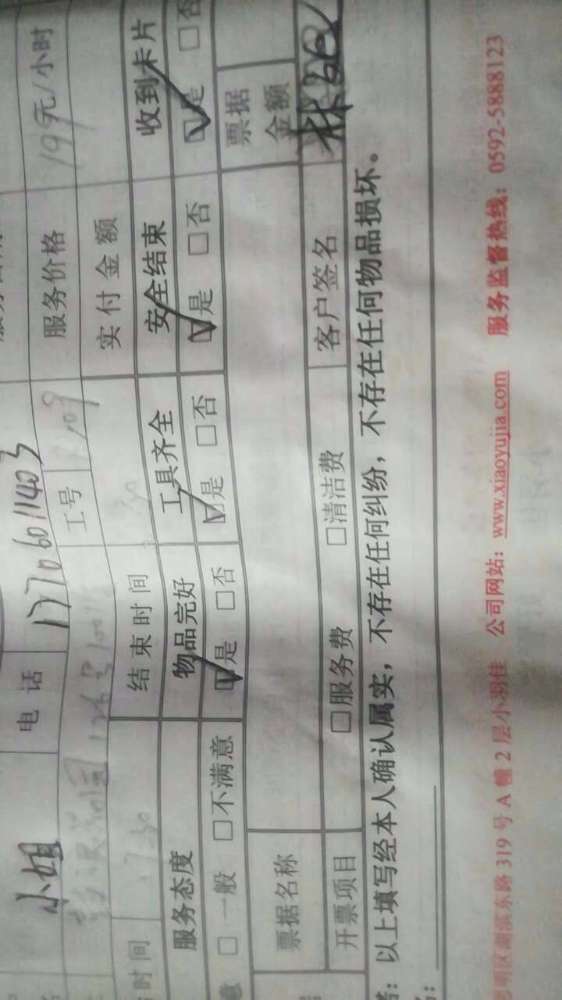 小姐 电话 17706011403
工号 服务价格 199元/小时
时间 17:30 结束时间 实付金额
服务态度 物品完好 工具齐全 安全结束 收到卡片
意 □一般 □不满意 ☑是 □否 ☑是 □否 ☑是 □否 ☑是 □否
票据名称 票据金额
开票项目 □服务费 □清洁费 客户签名
以上填写经本人确认属实，不存在任何纠纷，不存在任何物品损坏。
明区湖滨东路 319 号 A 幢 2 层小羽佳 公司网站：www.xiaoyujia.com 服务监督热线：0592-5888123